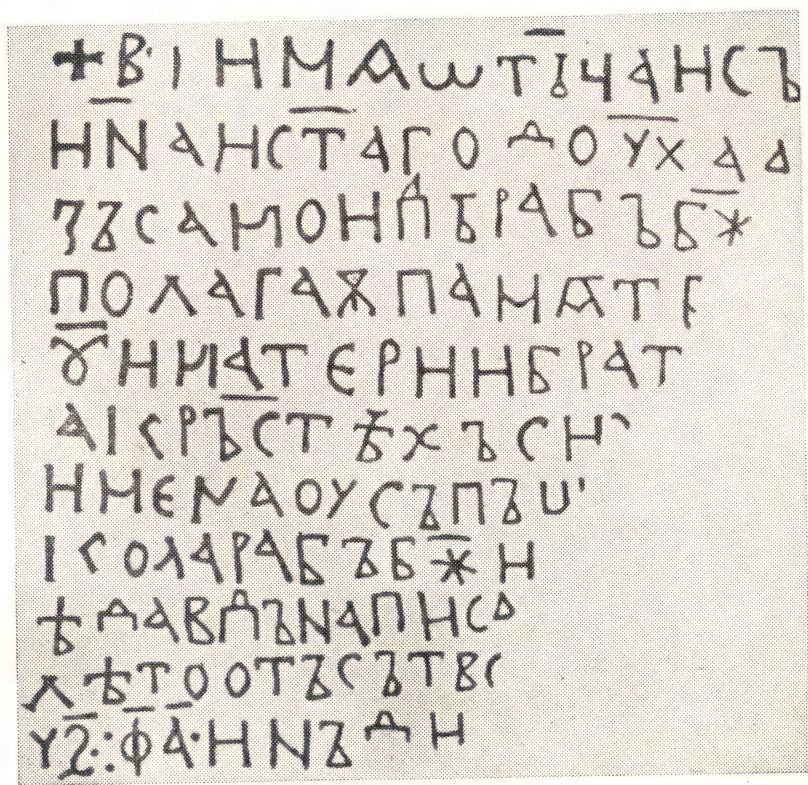 + В І И М А Ѡ Т І Ч А И С Ъ
И Н А И С Т А Г О Д О У Х А А
З Ъ С А М О И Д Ъ Р А Б Ъ Б Ж
П О Л А Г А Ѫ П А М Ѧ Т Е
Ꙋ И М А Т Е Р И И Б Р А Т
А І К Р Ъ С Т Ѣ Х Ъ С И
И М Е Н А О У С Ъ П Ъ Ш
І К О Л А Р А Б Ъ Б Ж И
Ѣ Д А В Д Ъ Н А П И С А
Л Ѣ Т О О Т Ъ С Ъ Т В С
У Ѕ·: Ф А· И Н Ъ Д И